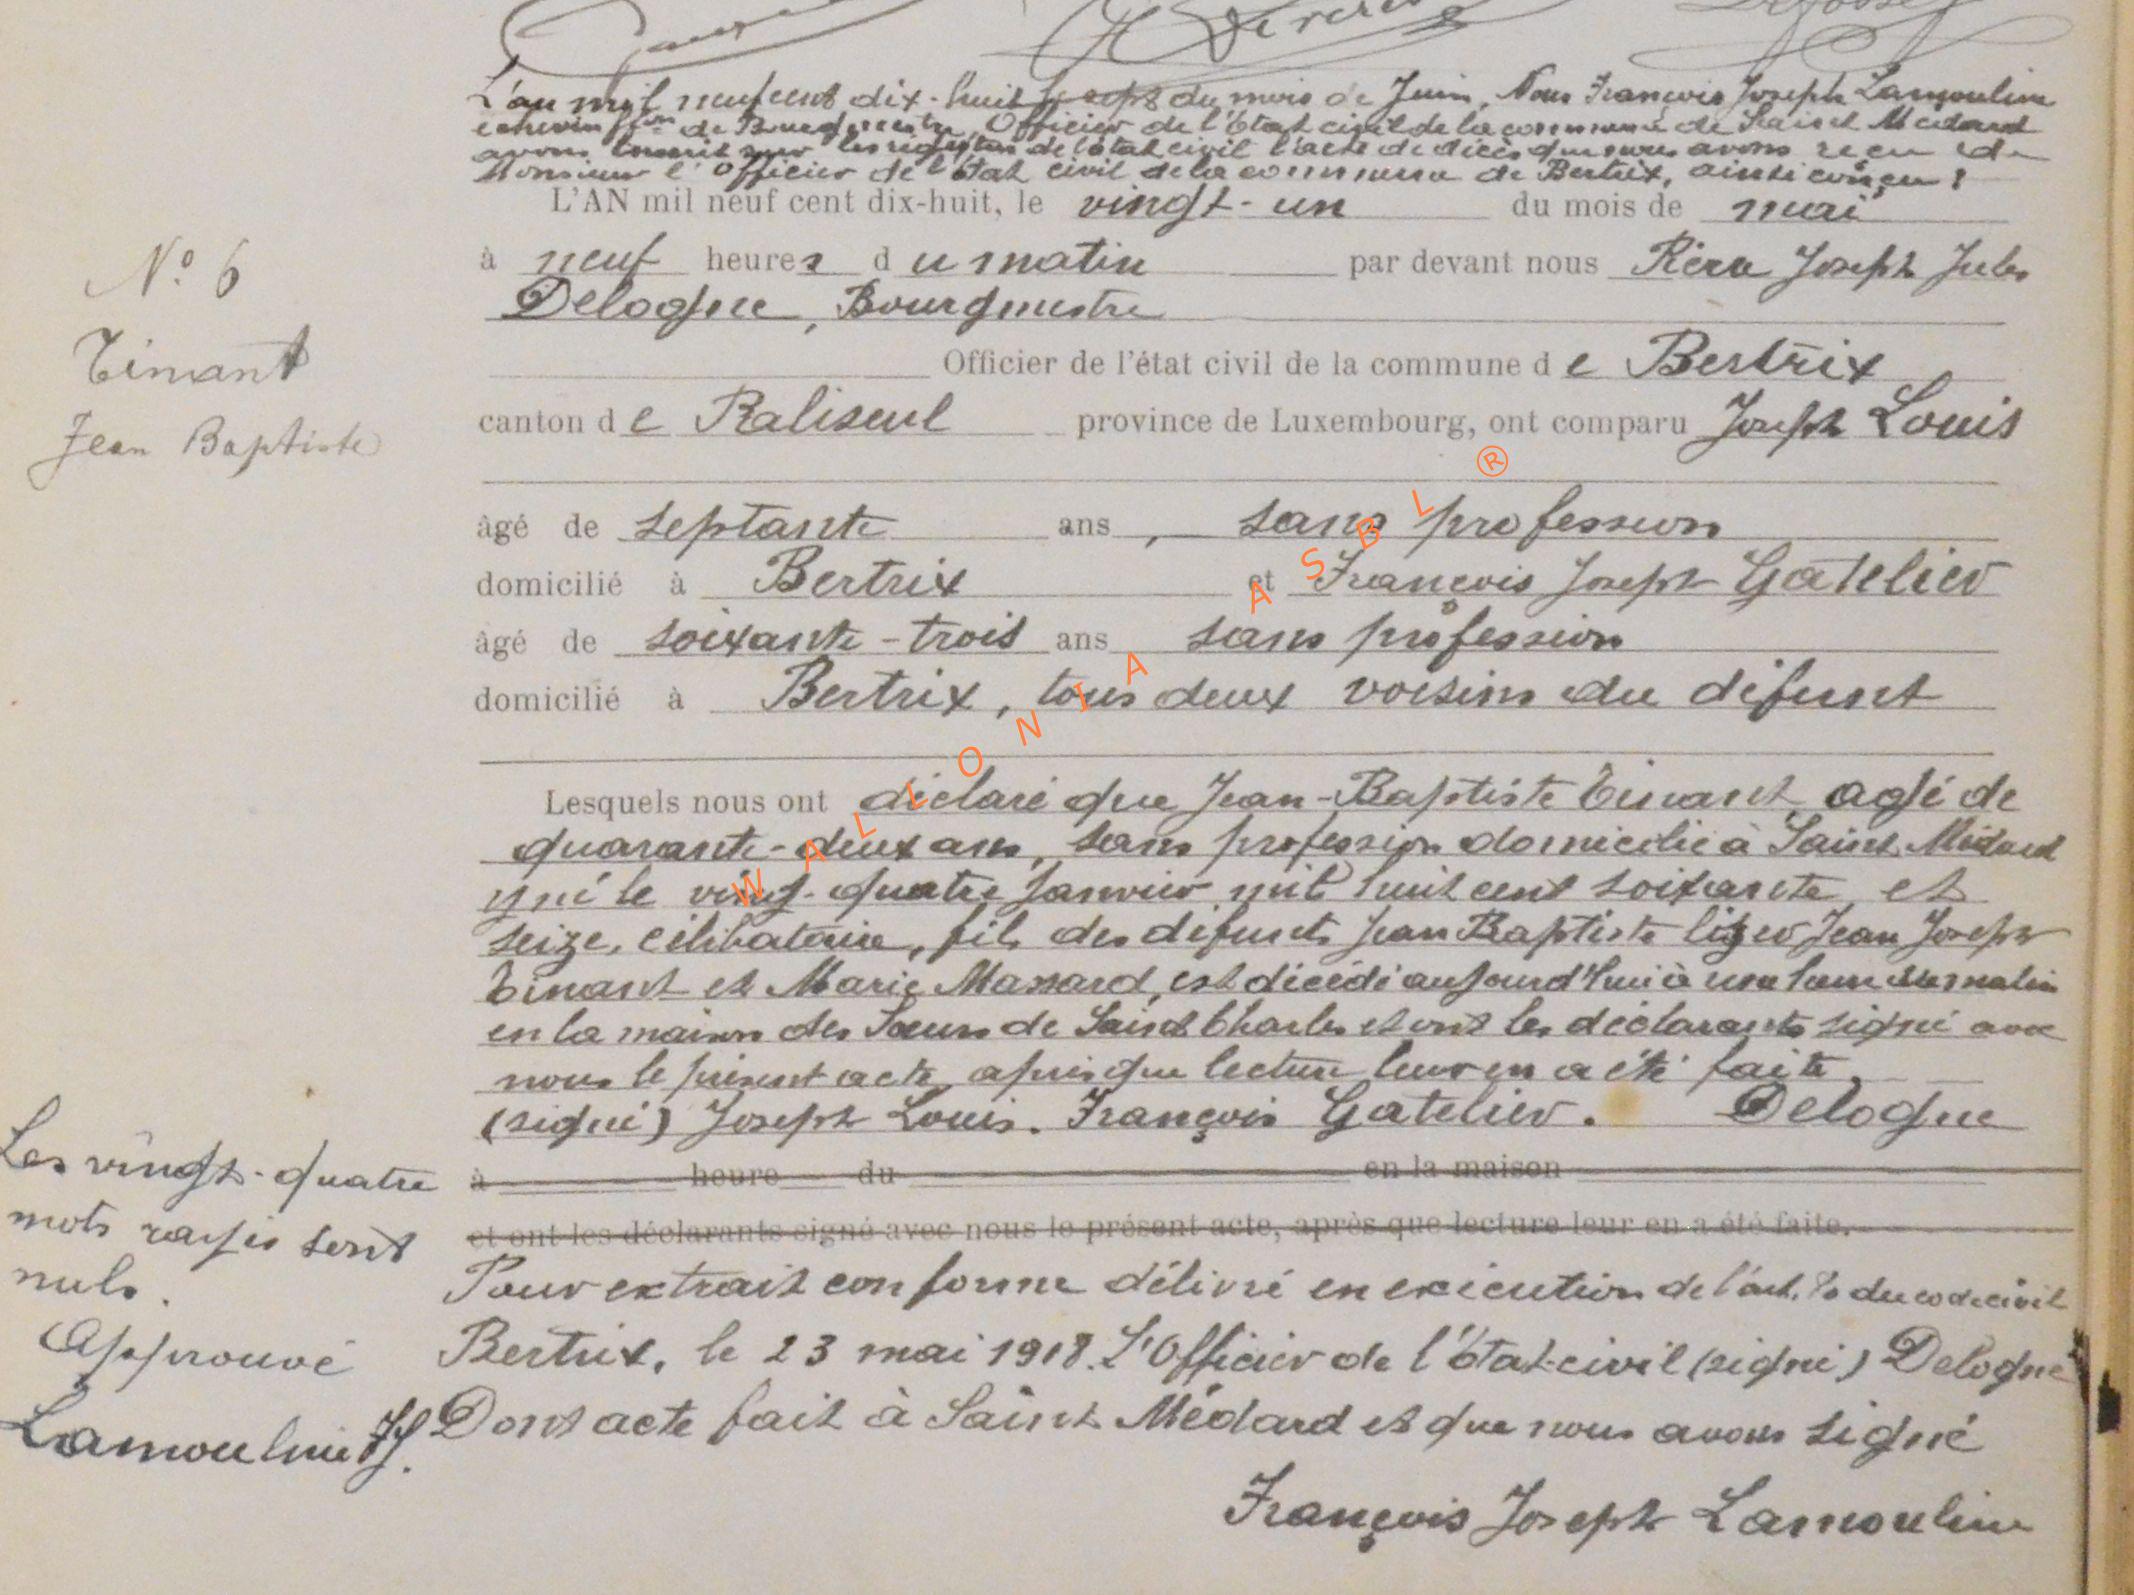 L'an mil neuf cent dix-huit le sept du mois de Juin, Nous François Joseph Lamouline
échevin ffon de Bourgmestre, Officier de l'Etat civil de la commune de Saint Médard
avons inscrit sur les registres de l'état civil l'acte de décès que nous avons reçu de
Monsieur l'Officier de l'état civil de la commune de Bertrix, ainsi conçu :
L'AN mil neuf cent dix-huit, le vingt-un du mois de mai
à neuf heures du matin par devant nous Joseph Jules
Delogne, Bourgmestre
Officier de l'état civil de la commune de Bertrix
canton de Paliseul province de Luxembourg, ont comparu Joseph Louis
âgé de septante ans, sans profession
domicilié à Bertrix et François Joseph Gatelier
âgé de soixante-trois ans sans profession
domicilié à Bertrix, tous deux voisins du défunt
Lesquels nous ont déclaré que Jean-Baptiste Tinant agé de
quarante-deux ans, sans profession domicilié à Saint Médard
y né le vingt-quatre Janvier mil huit cent soixante et
seize, célibataire, fils des défunts Jean Baptiste Jean Joseph
Tinant et Marie Massard, est décédé aujourd'hui à une heure du matin
en la maison des Sœurs de Saint Charles et ont les déclarants signé avec
nous le présent acte, après que lecture leur en a été faite.
(signé) Joseph Louis. François Gatelier. Delogne
à heure du en la maison
et ont les déclarants signé avec nous le présent acte, après que lecture leur en a été faite.
Pour extrait conforme délivré en exécution de l'art. 80 du code civil
Bertrix, le 23 mai 1918. L'Officier de l'état-civil (signé) Delogne
Dont acte fait à Saint Médard et que nous avons signé
François Joseph Lamouline
N° 6
Tinant
Jean Baptiste
Les vingt-quatre
mots rayés sont
nuls.
Approuvé
Lamouline FJ.
WALLONIA ASBL ®